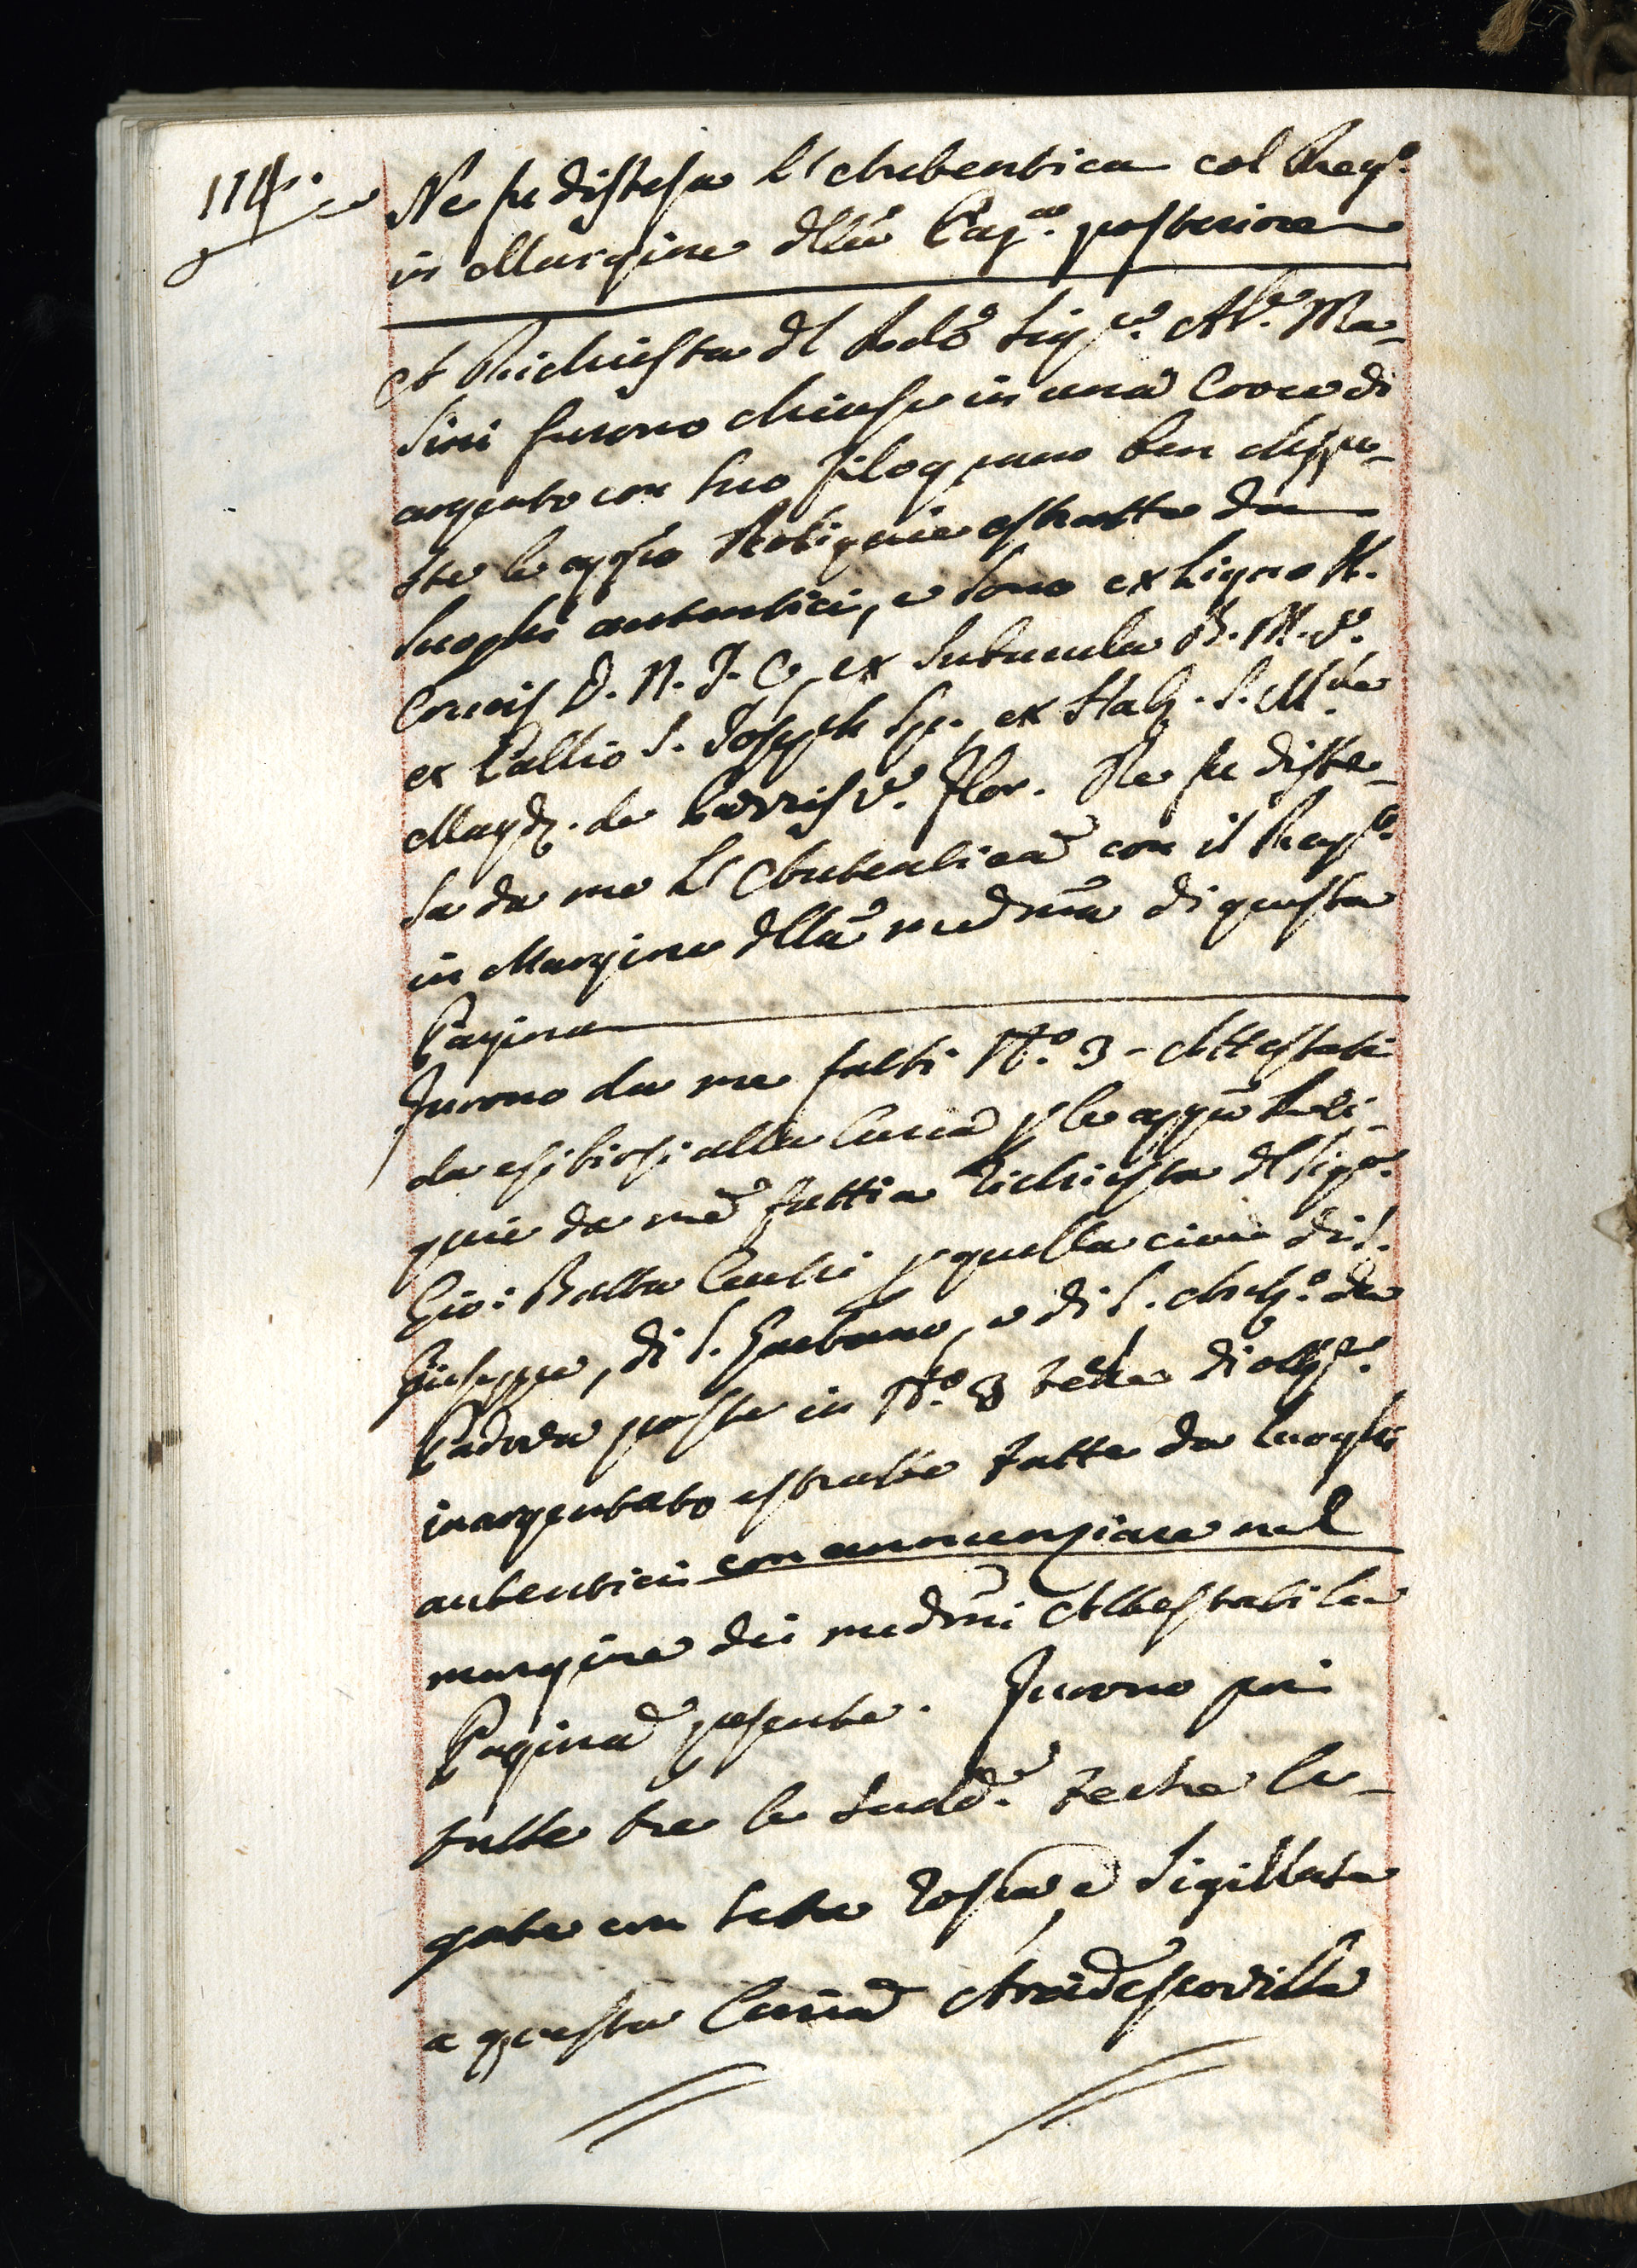 114.
Ne fu distesa l'Autentica col Reg.º
in Margine dlla Pag.ª posteriore
A Richiesta dl Rdo Sig.re Ab.e Ma-
sini furono chiuse in una Croce di
argento con suo filograno ben dispo-
ste le appie Reliquie estratte da
luoghi autentici, e sono ex Ligno SS.
Crucis D. N. J. C., ex Subucula B. M. V.
ex Pallio S. Joseph Sp., ex S. M.
Magd. de Pazzis V. Flor. Ne fu diste-
sa da me l'Autentica con il Reg.º
in Margine dlla medma di questa
Pagina
Furono da me fatti N.º 3 - Attestati
da esibirsi alla Curia p le appie Reli-
quie da me fatti a richiesta dl Sig.r
Gio: Batta p quella cioè di S.
Giuseppe, di S. Gaetano, e di S. Ant.º da
Padova poste in N.º 3 teche di
inargentato estratte tutte da luoghi
autentici con annunziare nel
margine dei medmi Attestati la
Pagina presente. Furono poi
tutte tre le sudd.e teche le-
gate con seta rossa, e sigillate
a questa Curia Arcivescovile